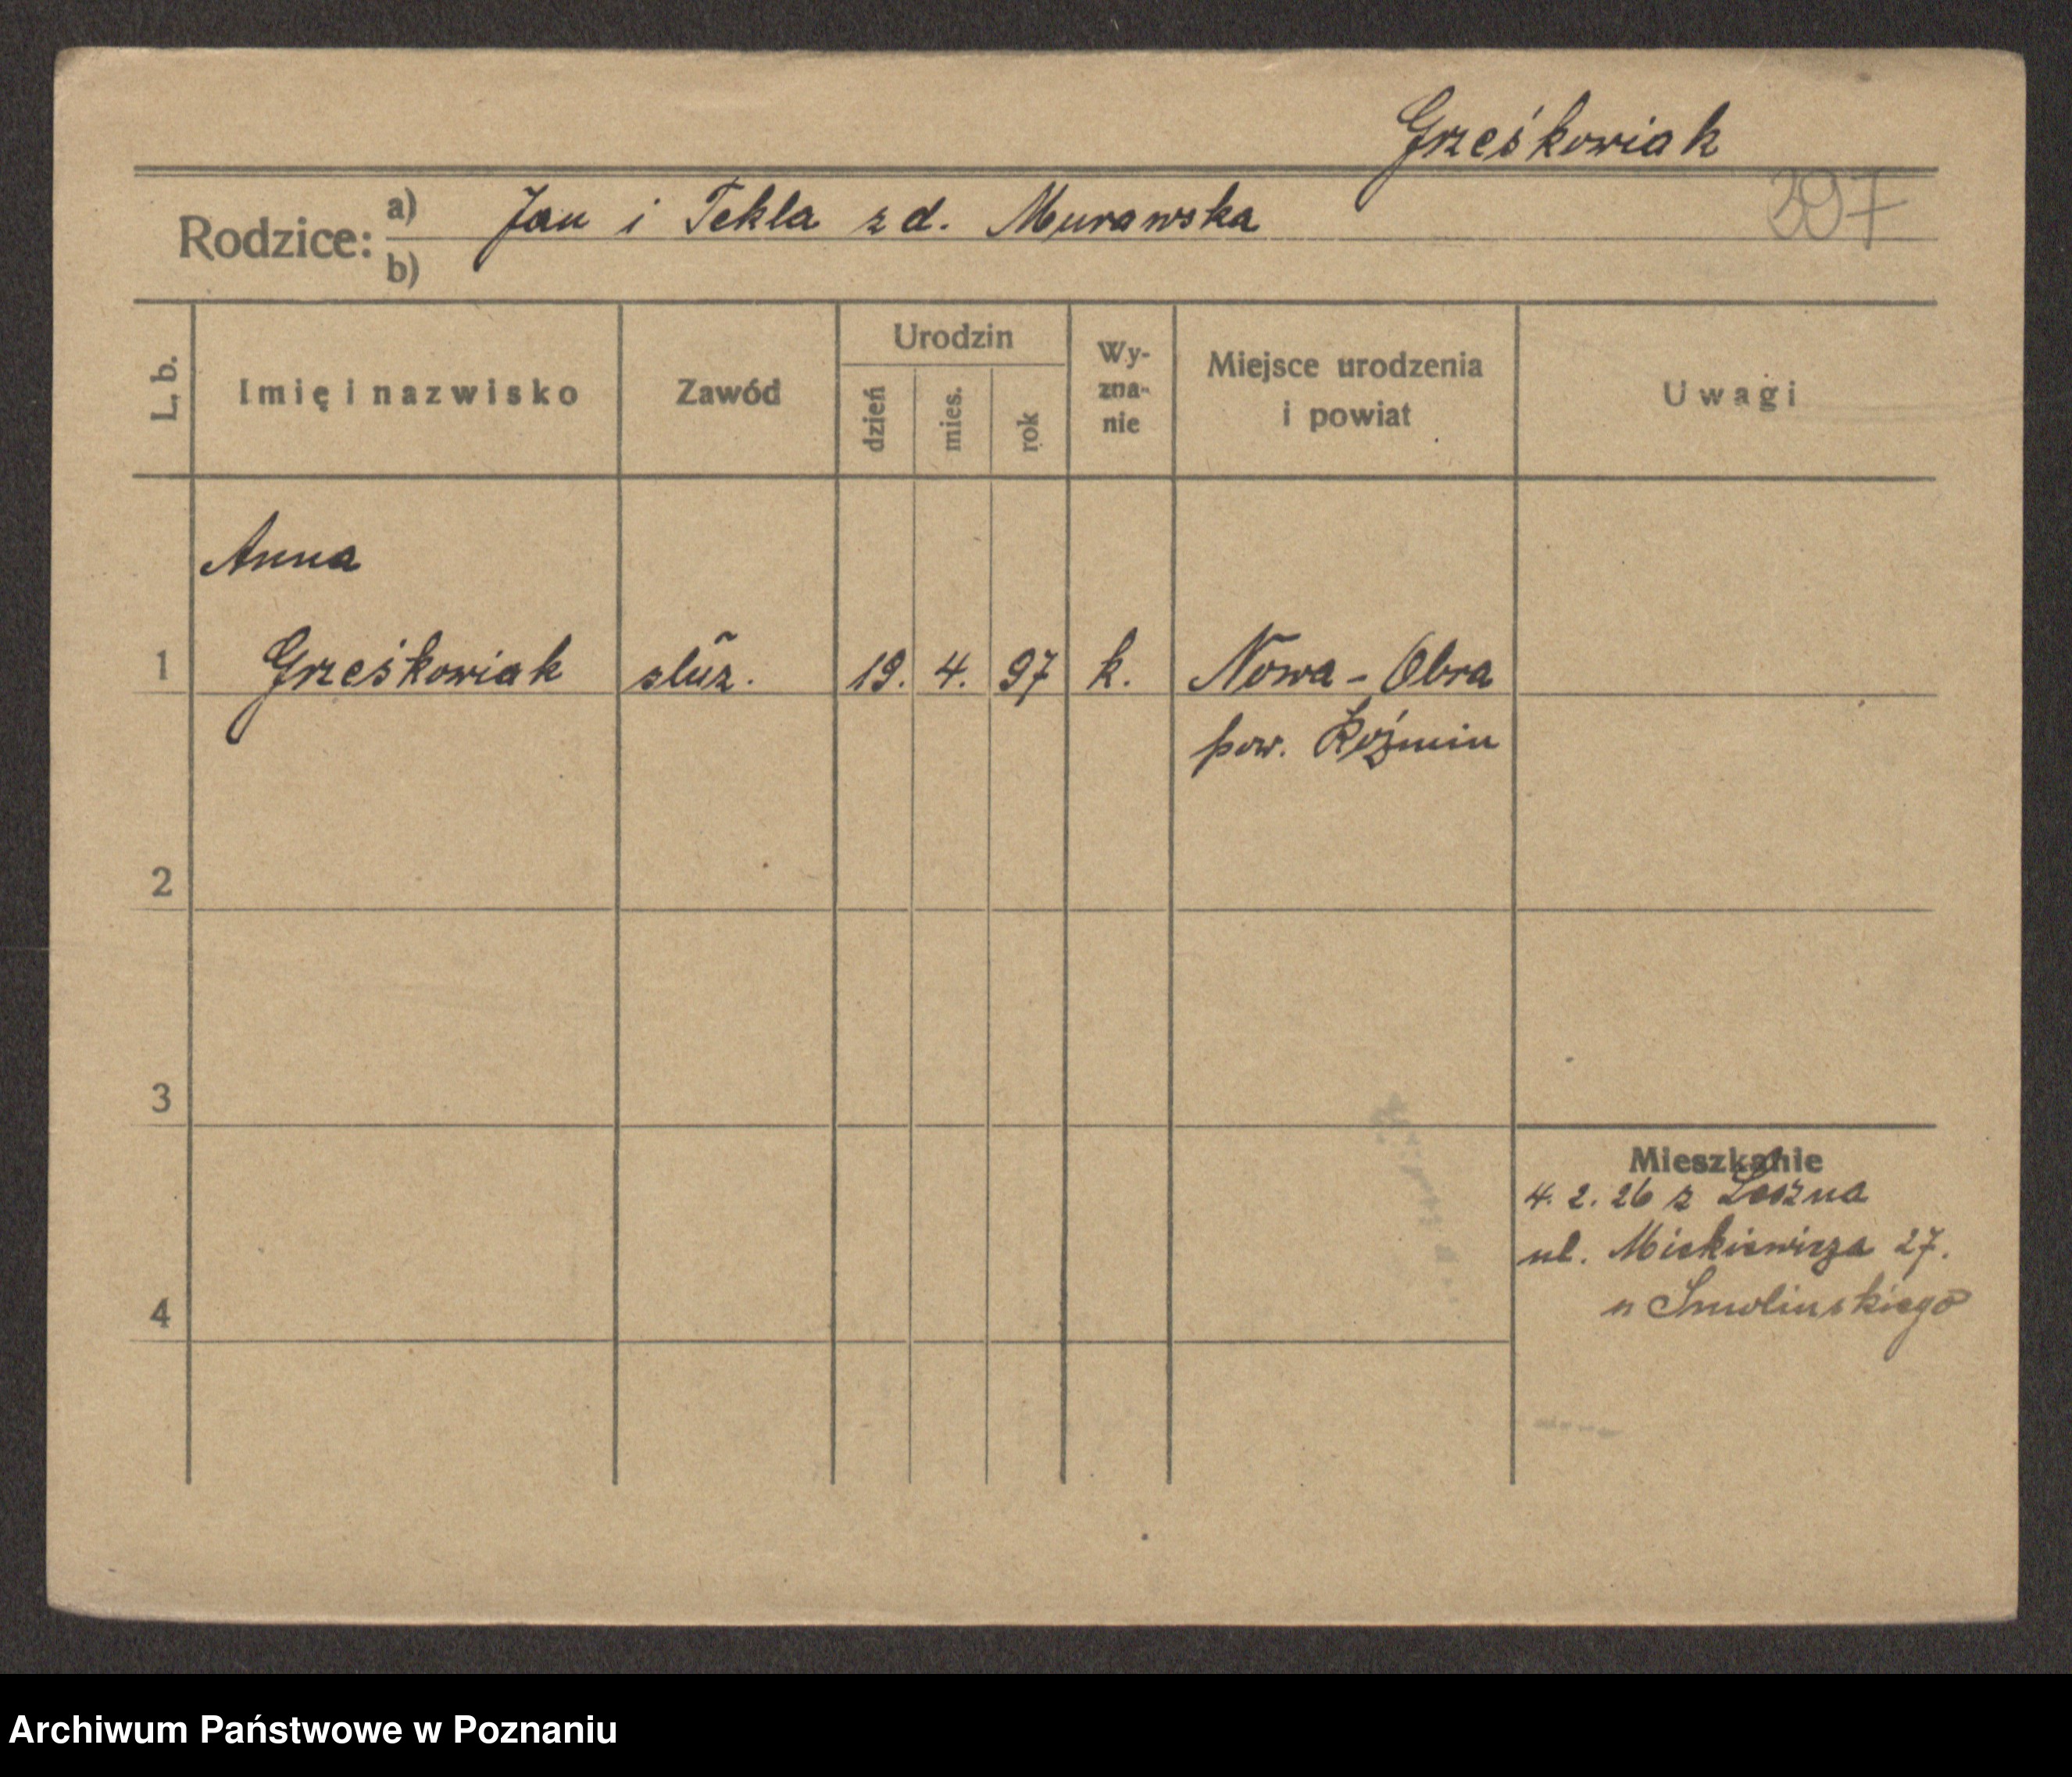 Grześkowiak
297
Rodzice: a) Jan i Tekla z d. Murawska
b)
L. b. Imię i nazwisko Zawód Urodzin dzień mies. rok Wy-zna-nie Miejsce urodzenia i powiat Uwagi
Anna
1 Grześkowiak służ. 19. 4. 97 k. Nowa-Obra
pow. Koźmin
2
3
Mieszkanie
4. 2. 26 z
ul. Mickiewicza 27.
4 u Smolinskiego
Archiwum Państwowe w Poznaniu